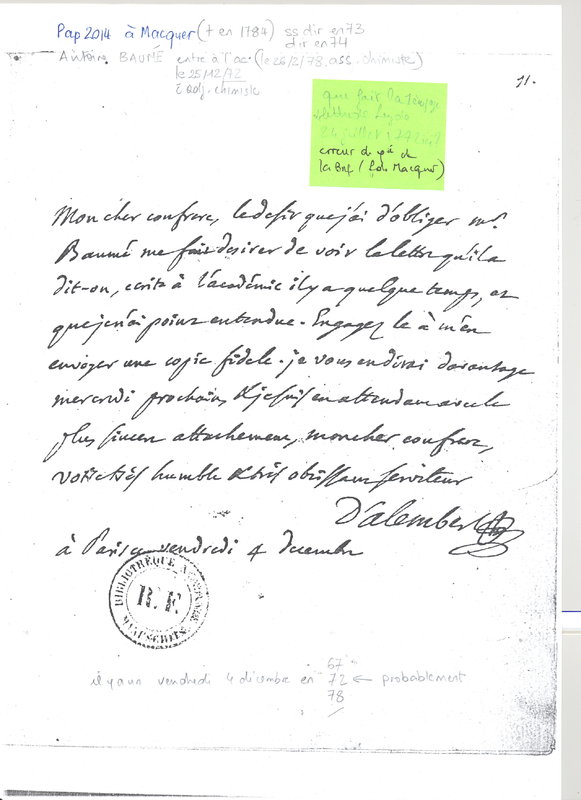 Pap 2014 à Macquer (+ en 1784) ss dir en 73
dir en 74
Antoine BAUMÉ entre à l'ac. (le 26/2/78, ass. chimiste)
le 25/12/72
adj. chimiste
71.
que fait la
24 juillet 1772
erreur de de
la BNF (Macquer)
Mon cher confrere, le desir que j'ai d'obliger mr.
Baumé me fait desirer de voir la lettre qu'il a
dit-on, ecrite à l'académie il y a quelque temps, et
que je n'ai point entendue. Engagez le à m'en
envoyer une copie fidele. je vous en dirai davantage
mercredi prochain, & je suis en attendant avec le
plus sincere attachement, mon cher confrere,
votre très humble & très obéissant serviteur
D'alembert
à Paris ce vendredi 4 decembre
BIBLIOTHÈQUE
R.F.
MANUSCRITS
67
il y a un vendredi 4 décembre en 72 ← probablement
78